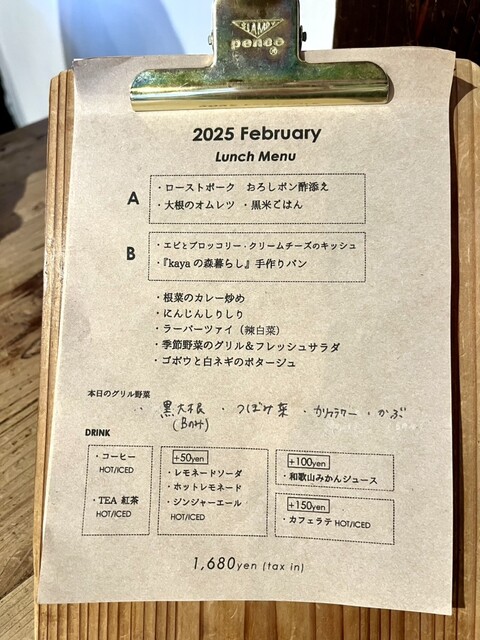 STAMP
penco
®
2025 February
Lunch Menu
A
・ローストポーク おろしポン酢添え
・大根のオムレツ ・黒米ごはん
B
・エビとブロッコリー・クリームチーズのキッシュ
・『kayaの森暮らし』手作りパン
・根菜のカレー炒め
・にんじんしりしり
・ラーパーツァイ（辣白菜）
・季節野菜のグリル＆フレッシュサラダ
・ゴボウと白ネギのポタージュ
本日のグリル野菜
・黒大根 ・つぼみ菜 ・カリフラワー ・かぶ
(Bのみ)
DRINK
・コーヒー
HOT/ICED
・TEA 紅茶
HOT/ICED
+50yen
・レモネードソーダ
・ホットレモネード
・ジンジャーエール
HOT/ICED
+100yen
・和歌山みかんジュース
+150yen
・カフェラテ HOT/ICED
1,680yen (tax in)